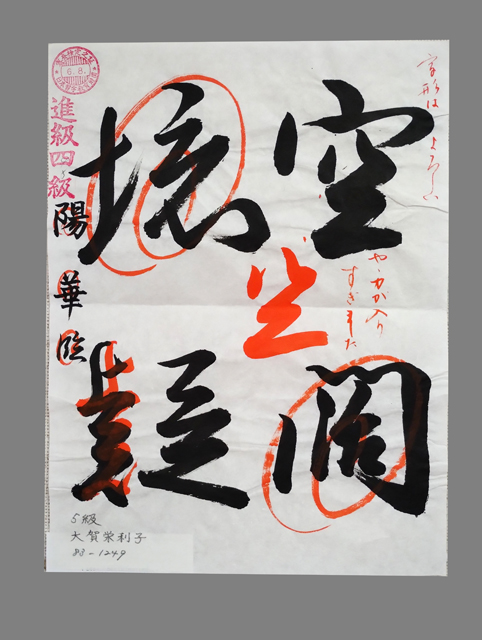 字形は よろしい
空
闊
やゝ力が入り
すぎました
疑
陽華臨
6.8.
進級四級
5級
大賀栄利子
83-1249